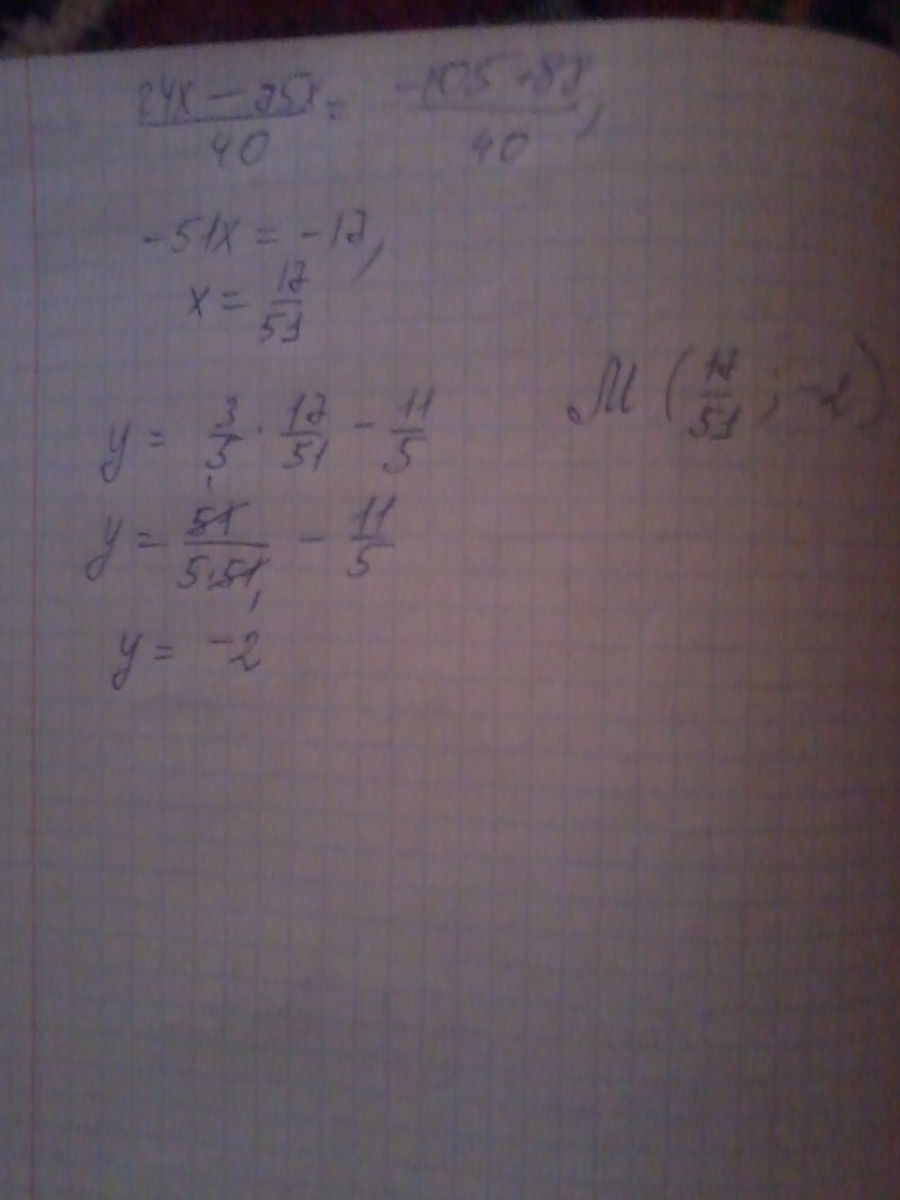 24x − 75x / 40 = −105 + 88 / 40,
-51x = -17,
x = 17/51
y = 3/5 · 17/51 − 11/5
M (17/51 ; -2)
y = 51/5·51 − 11/5
y = -2